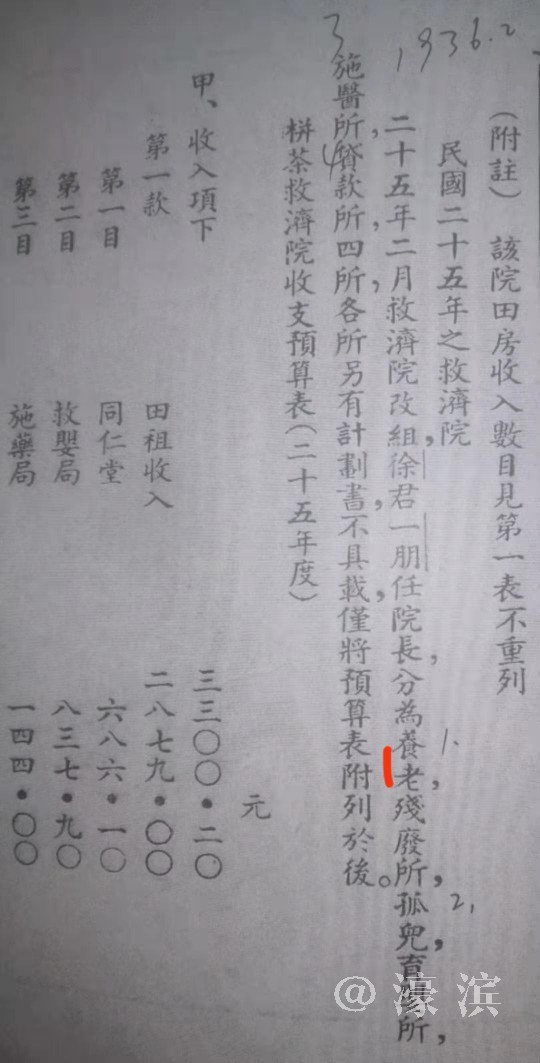 1936.2
(附註) 該院田房收入數目見第一表不重列
民國二十五年之救濟院
二十五年二月救濟院改組,徐君一朋任院長,分為1.養老,殘廢所,2,孤兒育嬰所,
3施醫所,4貸款所,四所各所另有計劃書,不具載,僅將預算表附列於後。
栟茶救濟院收支預算表(二十五年度)
元
甲、收入項下 三三〇〇・二〇
第一款 田祖收入 二八七九・〇〇
第一目 同仁堂 六八六・一〇
第二目 救嬰局 八三七・九〇
第三目 施藥局 一四四・〇〇
@濠滨